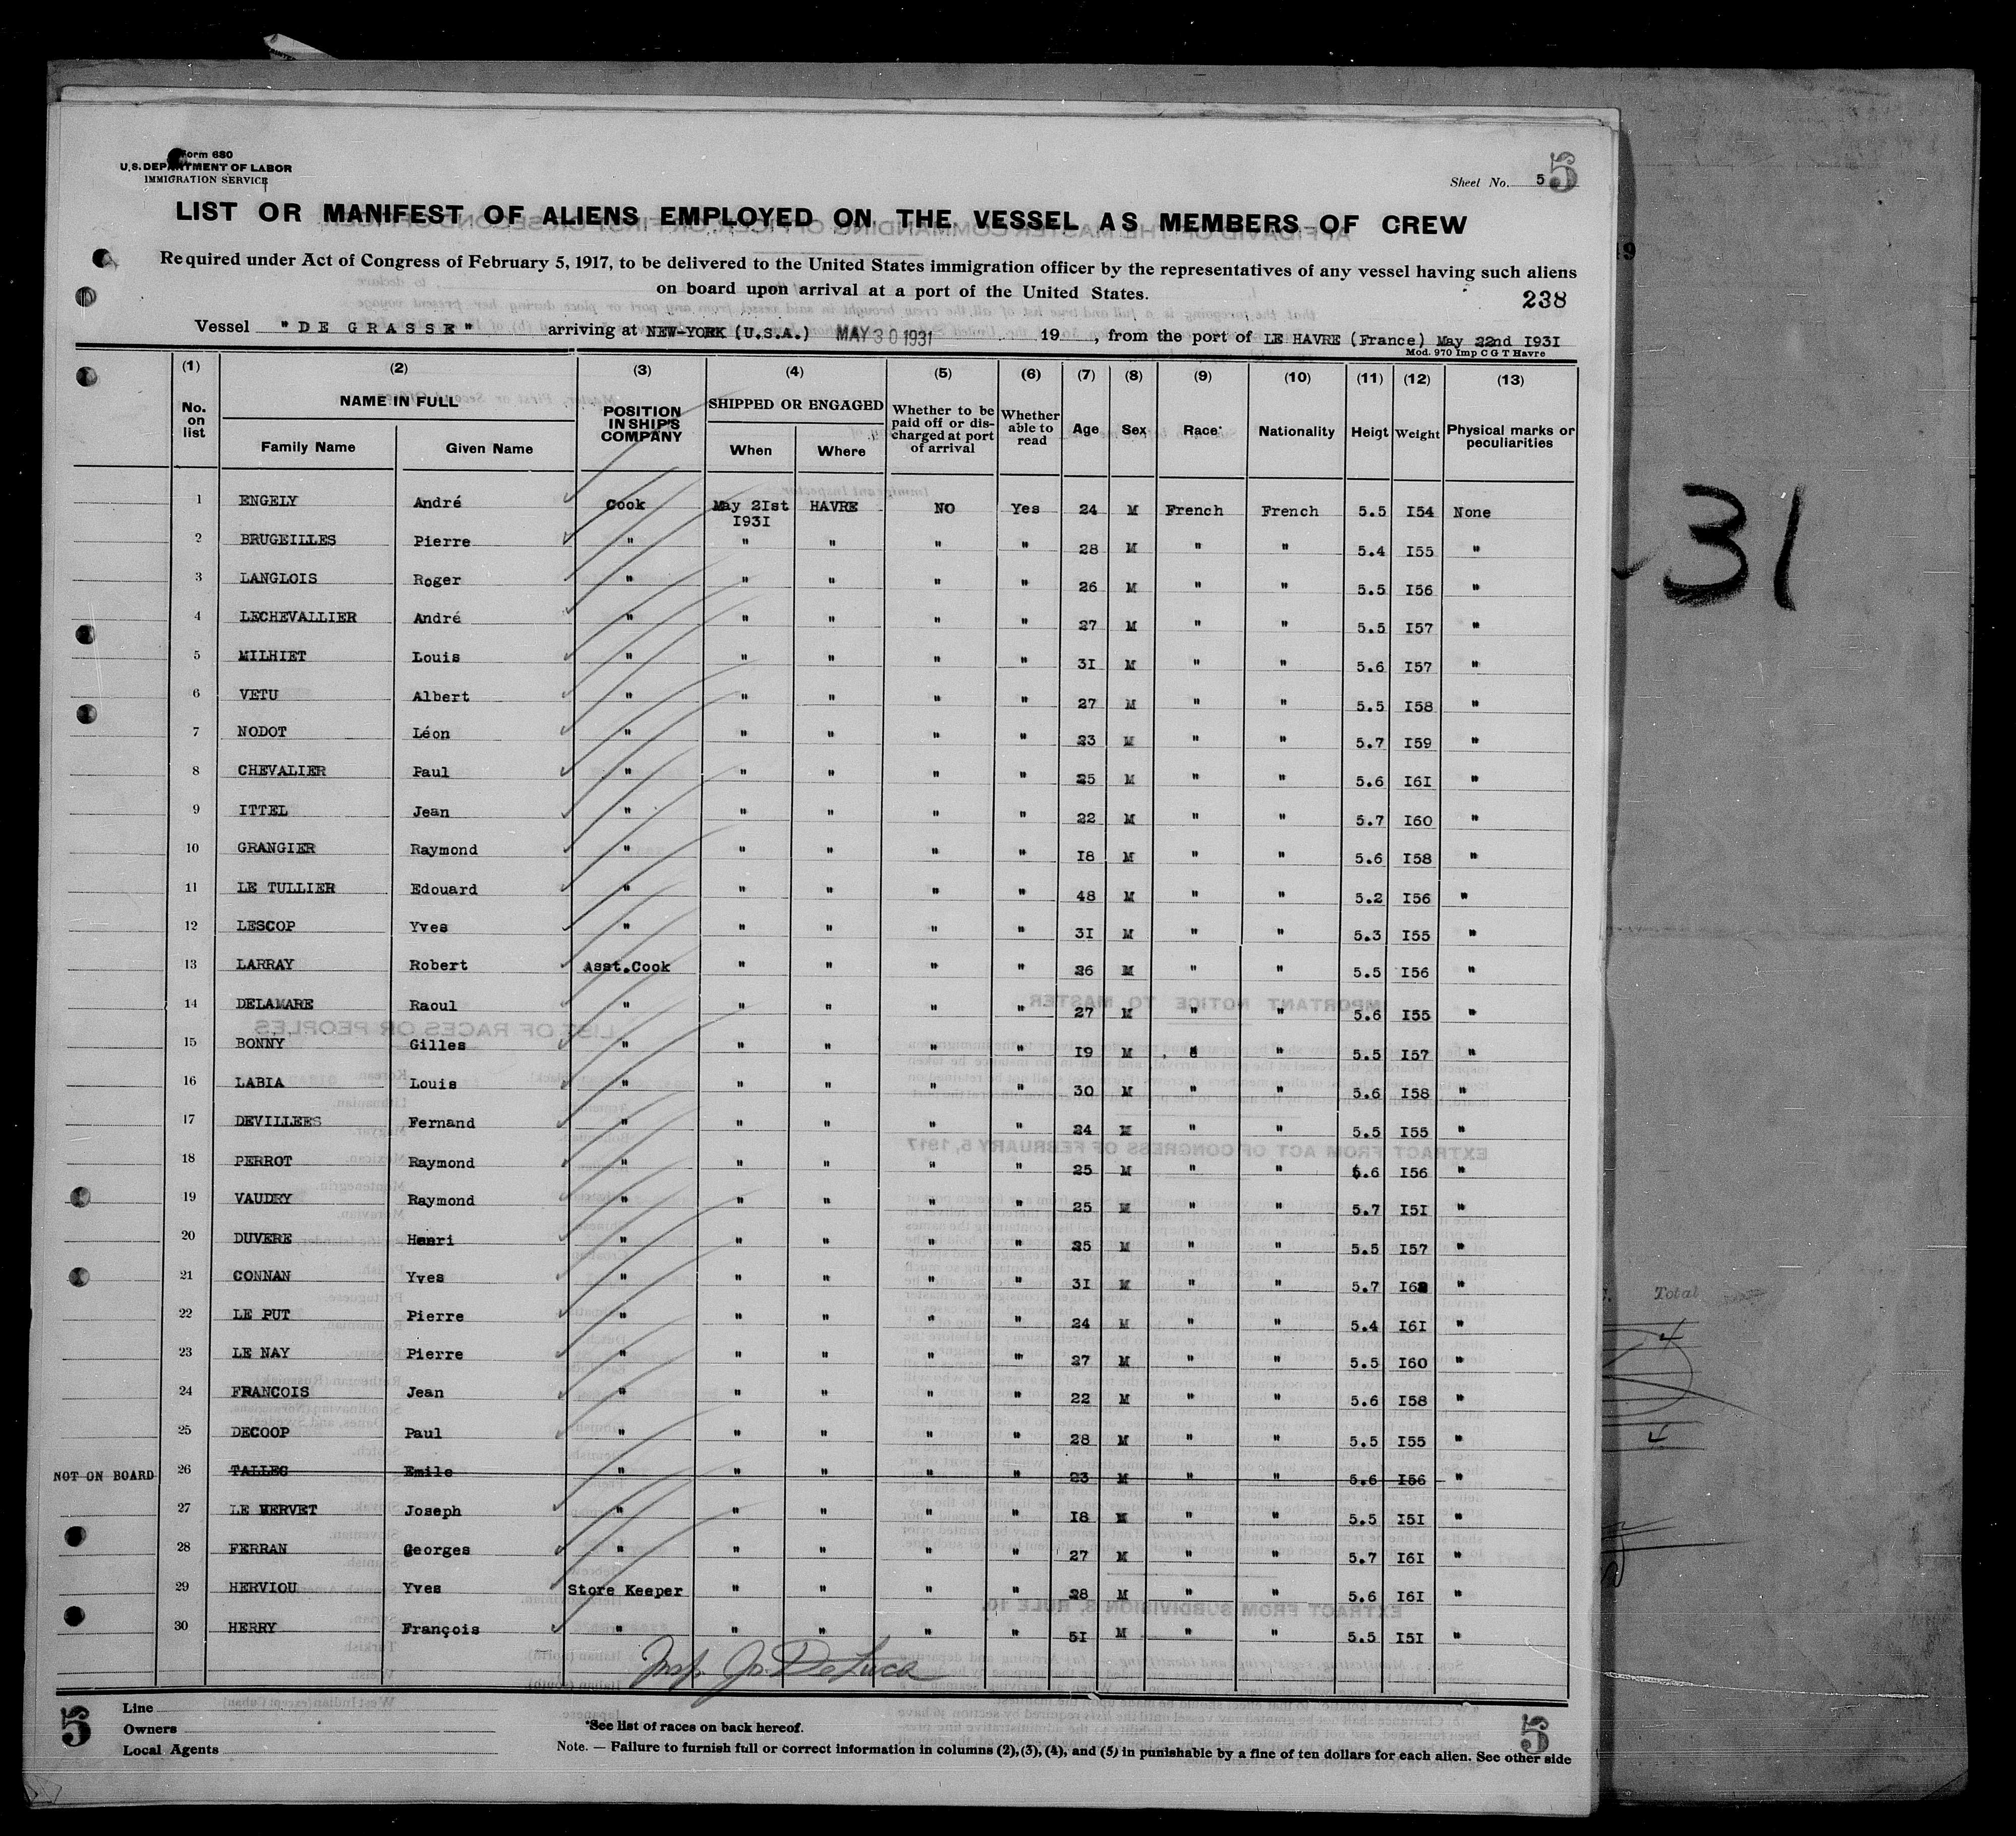 Form 680
U.S. DEPARTMENT OF LABOR
IMMIGRATION SERVICE
Sheet No. 5 5
LIST OR MANIFEST OF ALIENS EMPLOYED ON THE VESSEL AS MEMBERS OF CREW
Required under Act of Congress of February 5, 1917, to be delivered to the United States immigration officer by the representatives of any vessel having such aliens
on board upon arrival at a port of the United States.
238
Vessel "DE GRASSE" arriving at NEW-YORK (U.S.A.) MAY 30 1931 19 , from the port of LE HAVRE (France) May 22nd I93I
Mod. 970 Imp C G T Havre
(1) (2) (3) (4) (5) (6) (7) (8) (9) (10) (11) (12) (13)
No. on list NAME IN FULL Family Name Given Name POSITION IN SHIP'S COMPANY SHIPPED OR ENGAGED When Where Whether to be paid off or discharged at port of arrival Whether able to read Age Sex Race* Nationality Heigt Weight Physical marks or peculiarities
1 ENGELY André Cook May 2Ist I93I HAVRE NO Yes 24 M French French 5.5 I54 None
2 BRUGEILLES Pierre " " " " " 28 M " " 5.4 I55 "
3 LANGLOIS Roger " " " " " 26 M " " 5.5 I56 "
4 LECHEVALLIER André " " " " " 27 M " " 5.5 I57 "
5 MILHIET Louis " " " " " 3I M " " 5.6 I57 "
6 VETU Albert " " " " " 27 M " " 5.5 I58 "
7 NODOT Léon " " " " " 23 M " " 5.7 I59 "
8 CHEVALIER Paul " " " " " 25 M " " 5.6 I6I "
9 ITTEL Jean " " " " " 22 M " " 5.7 I60 "
10 GRANGIER Raymond " " " " " I8 M " " 5.6 I58 "
11 LE TULLIER Edouard " " " " " 48 M " " 5.2 I56 "
12 LESCOP Yves " " " " " 3I M " " 5.3 I55 "
13 LARRAY Robert Asst.Cook " " " " 26 M " " 5.5 I56 "
14 DELAMARE Raoul " " " " " 27 M " " 5.6 I55 "
15 BONNY Gilles " " " " " I9 M " " 5.5 I57 "
16 LABIA Louis " " " " " 30 M " " 5.6 I58 "
17 DEVILLEES Fernand " " " " " 24 M " " 5.5 I55 "
18 PERROT Raymond " " " " " 25 M " " 5.6 I56 "
19 VAUDRY Raymond " " " " " 25 M " " 5.7 I5I "
20 DUVERE Henri " " " " " 25 M " " 5.5 I57 "
21 CONNAN Yves " " " " " 3I M " " 5.7 "
22 LE PUT Pierre " " " " " 24 M " " 5.4 I6I "
23 LE NAY Pierre " " " " " 27 M " " 5.5 I60 "
24 FRANCOIS Jean " " " " " 22 M " " 5.6 I58 "
25 DECOOP Paul " " " " " 28 M " " 5.5 I55 "
NOT ON BOARD 26 TALLEC Emile " " " " " 23 M " " 5.6 I56 "
27 LE HERVET Joseph " " " " " I8 M " " 5.5 I5I "
28 FERRAN Georges " " " " " 27 M " " 5.7 I6I "
29 HERVIOU Yves Store Keeper " " " " 28 M " " 5.6 I6I "
30 HERRY François " " " " " 5I M " " 5.5 I5I "
Insp. Jn. De Luca
5
Line
Owners
Local Agents
*See list of races on back hereof.
Note. — Failure to furnish full or correct information in columns (2), (3), (4), and (5) in punishable by a fine of ten dollars for each alien. See other side
5
31
Total